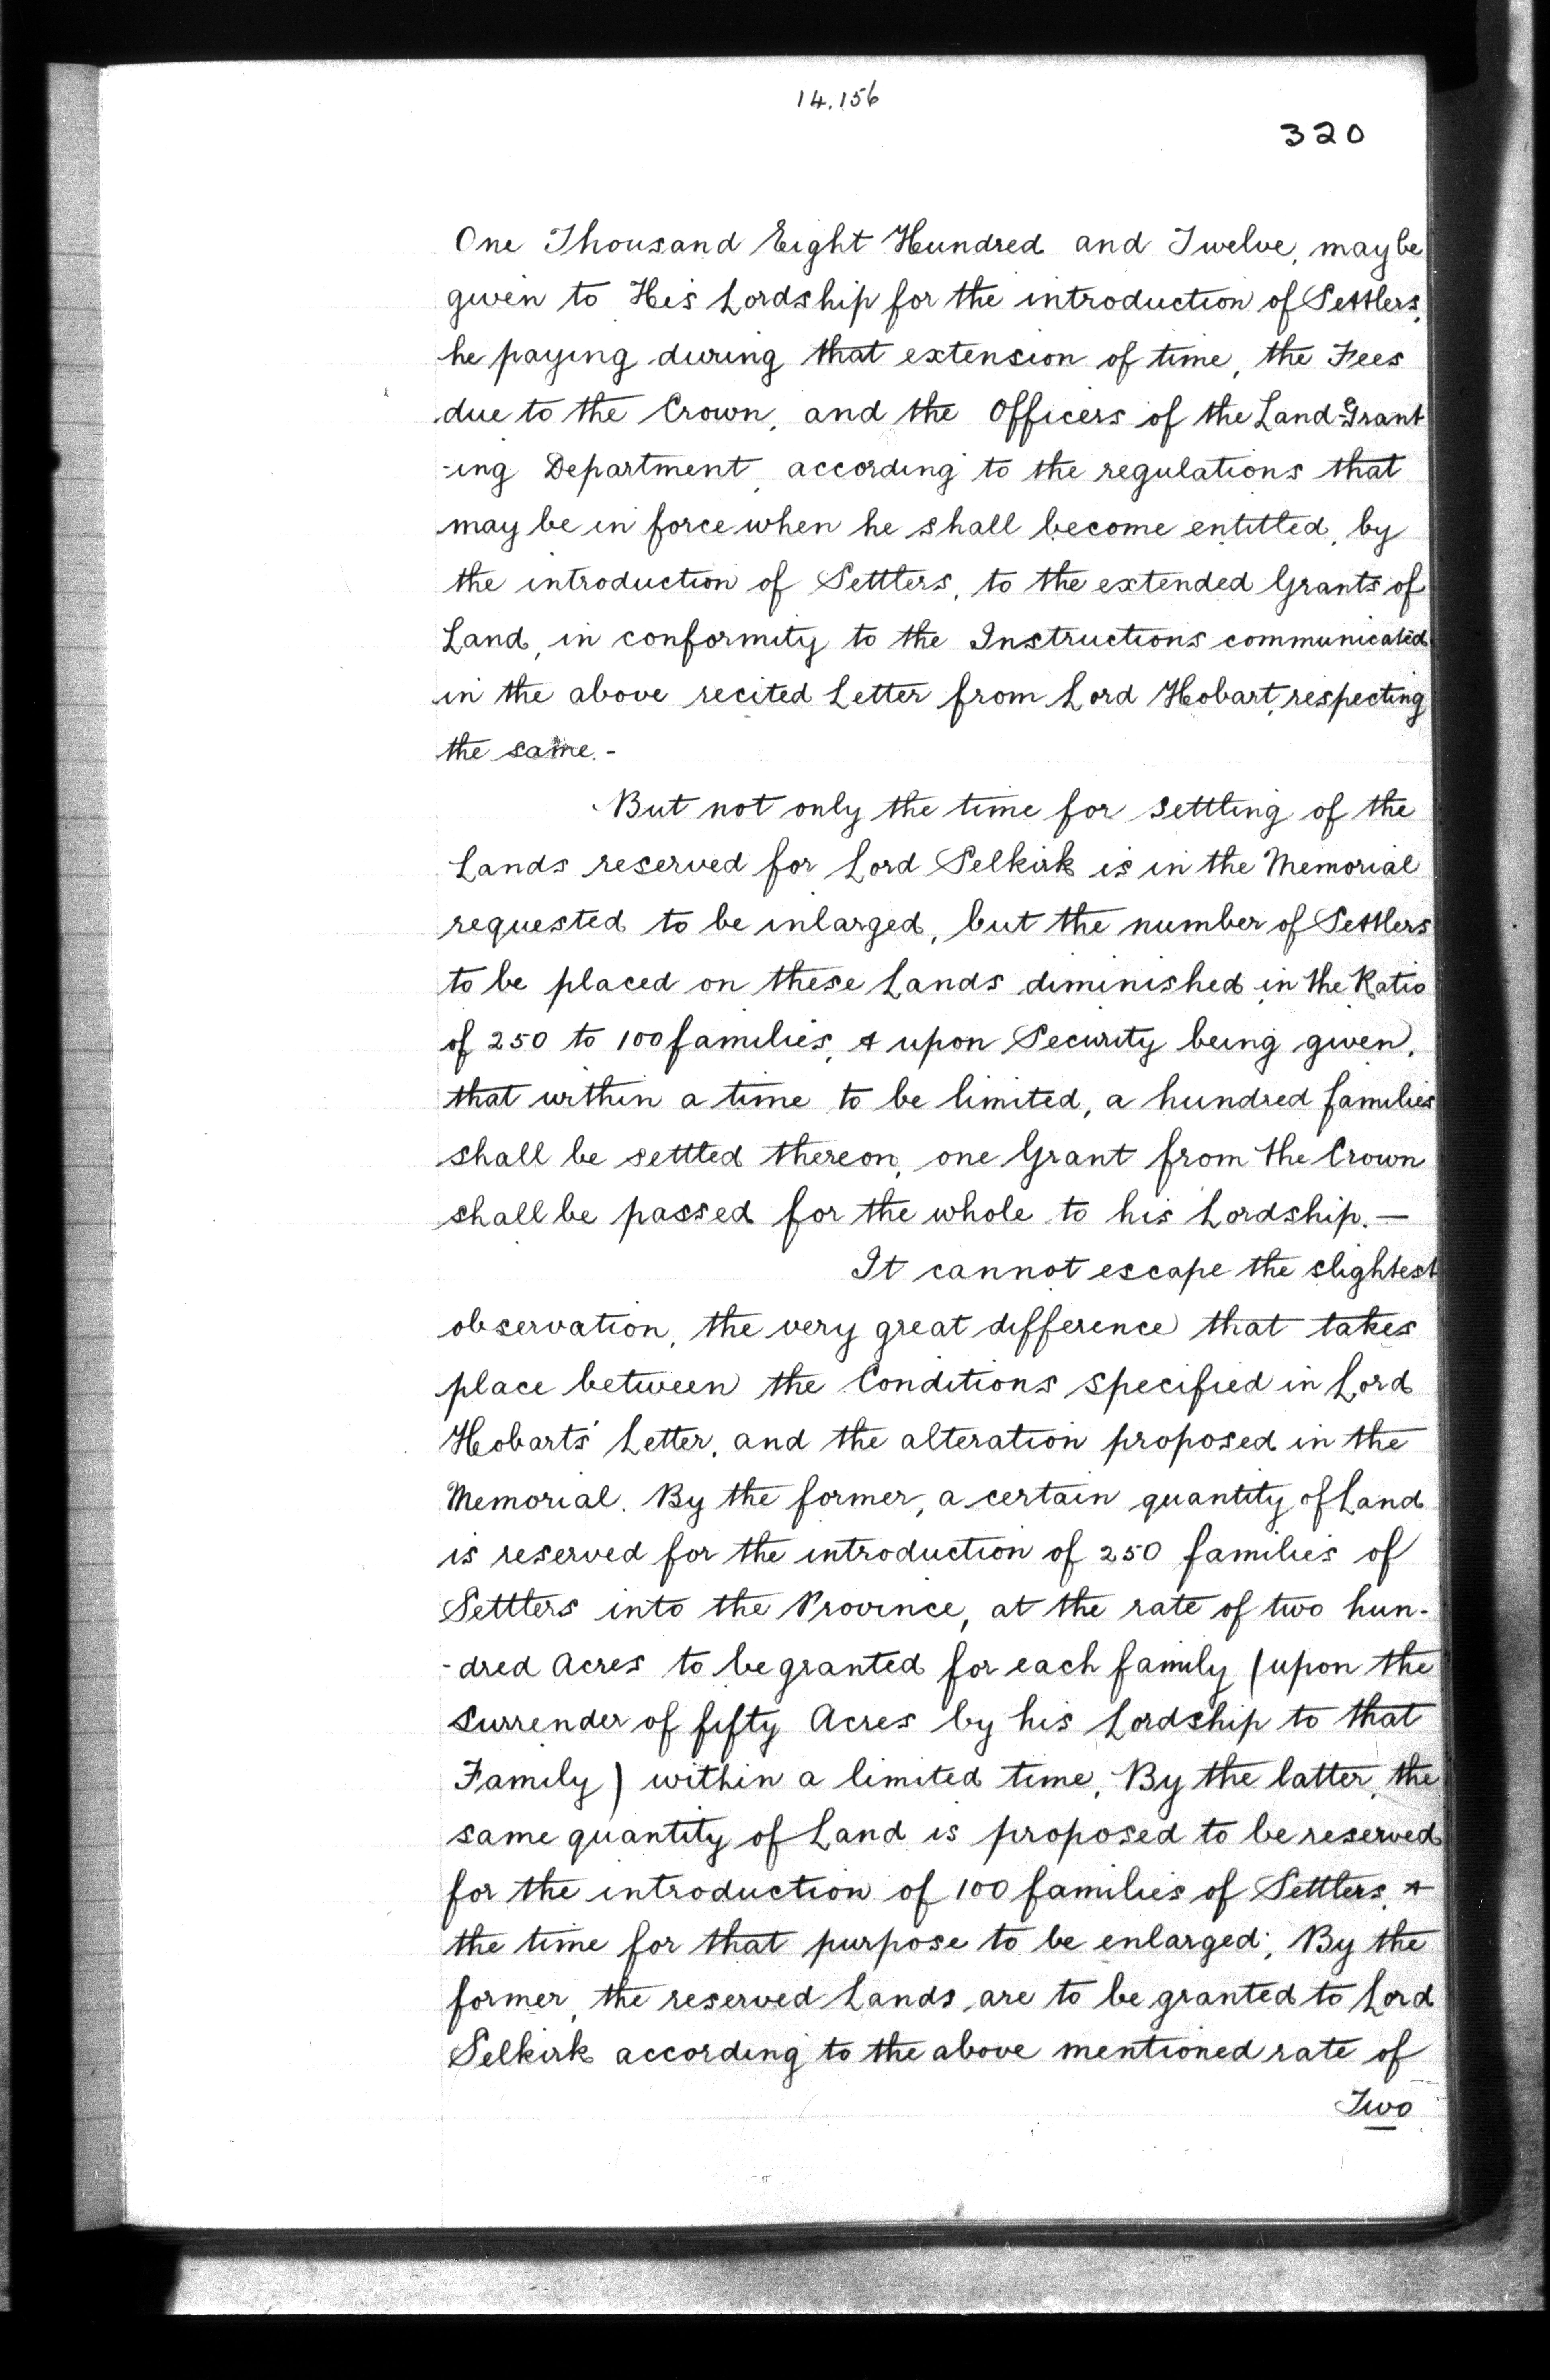 14.156
320
One Thousand Eight Hundred and Twelve, may be
given to His Lordship for the introduction of Settlers,
he paying during that extension of time, the Fees
due to the Crown, and the Officers of the Land-Grant
-ing Department, according to the regulations that
may be in force when he shall become entitled, by
the introduction of Settlers, to the extended Grants of
Land, in conformity to the Instructions communicated
in the above recited Letter from Lord Hobart, respecting
the same. -
But not only the time for settling of the
Lands reserved for Lord Selkirk is in the Memorial
requested to be inlarged, but the number of Settlers
to be placed on these Lands diminished in the Ratio
of 250 to 100 families, & upon Security being given,
that within a time to be limited, a hundred families
shall be settled thereon, one Grant from the Crown
shall be passed for the whole to his Lordship. —
It cannot escape the slightest
observation, the very great difference that takes
place between the Conditions specified in Lord
Hobarts' Letter, and the alteration proposed in the
Memorial. By the former, a certain quantity of Land
is reserved for the introduction of 250 families of
Settlers into the Province, at the rate of two hun-
-dred Acres to be granted for each family (upon the
Surrender of fifty Acres by his Lordship to that
Family) within a limited time, By the latter, the
same quantity of Land is proposed to be reserved
for the introduction of 100 families of Settlers, &
the time for that purpose to be enlarged; By the
former, the reserved Lands are to be granted to Lord
Selkirk according to the above mentioned rate of
Two